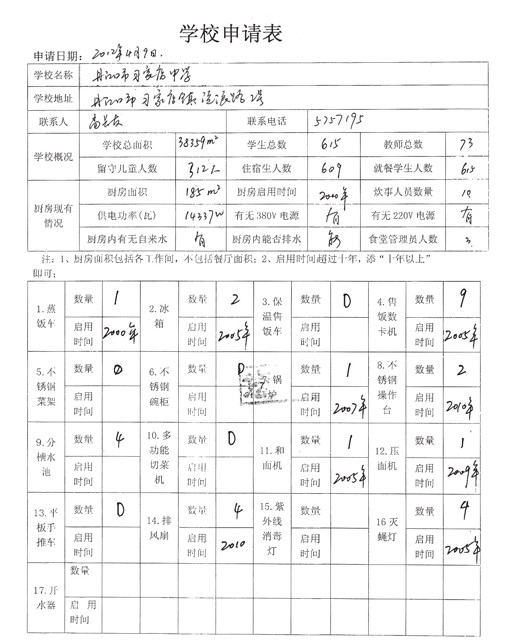 学校申请表
申请日期：2012年4月9日.
学校名称 丹江口市习家店中学
学校地址 丹江口市习家店镇 路2号
联系人 联系电话 5757195
学校概况 学校总面积 38359m² 学生总数 615 教师总数 73
留守儿童人数 312人 住宿生人数 609 就餐学生人数 615
厨房现有情况 厨房面积 185m² 厨房启用时间 2000年 炊事人员数量 10
供电功率(瓦) 14337W 有无 380V 电源 有 有无 220V 电源 有
厨房内有无自来水 有 厨房内能否排水 能 食堂管理员人数 3
注：1、厨房面积包括各工作间，不包括餐厅面积；2、启用时间超过十年，添“十年以上”
即可；
1.蒸饭车 数量 1 2.冰箱 数量 2 3.保温售饭车 数量 0 4.售饭数卡机 数量 9
启用时间 2000年 启用时间 2005年 启用时间 启用时间 2005年
5.不锈钢菜架 数量 0 6.不锈钢碗柜 数量 0 锅 数量 1 8.不锈钢操作台 数量 2
启用时间 启用时间 启用时间 2007年 启用时间 2010年
9.分槽水池 数量 4 10.多功能切菜机 数量 0 11.和面机 数量 1 12.压面机 数量 1
启用时间 启用时间 启用时间 2005年 启用时间 2009年
13.平板手推车 数量 0 14.排风扇 数量 4 15.紫外线消毒灯 数量 16 灭蝇灯 数量 4
启用时间 启用时间 2010 启用时间 启用时间 2005年
17.开水器 数量
启用时间